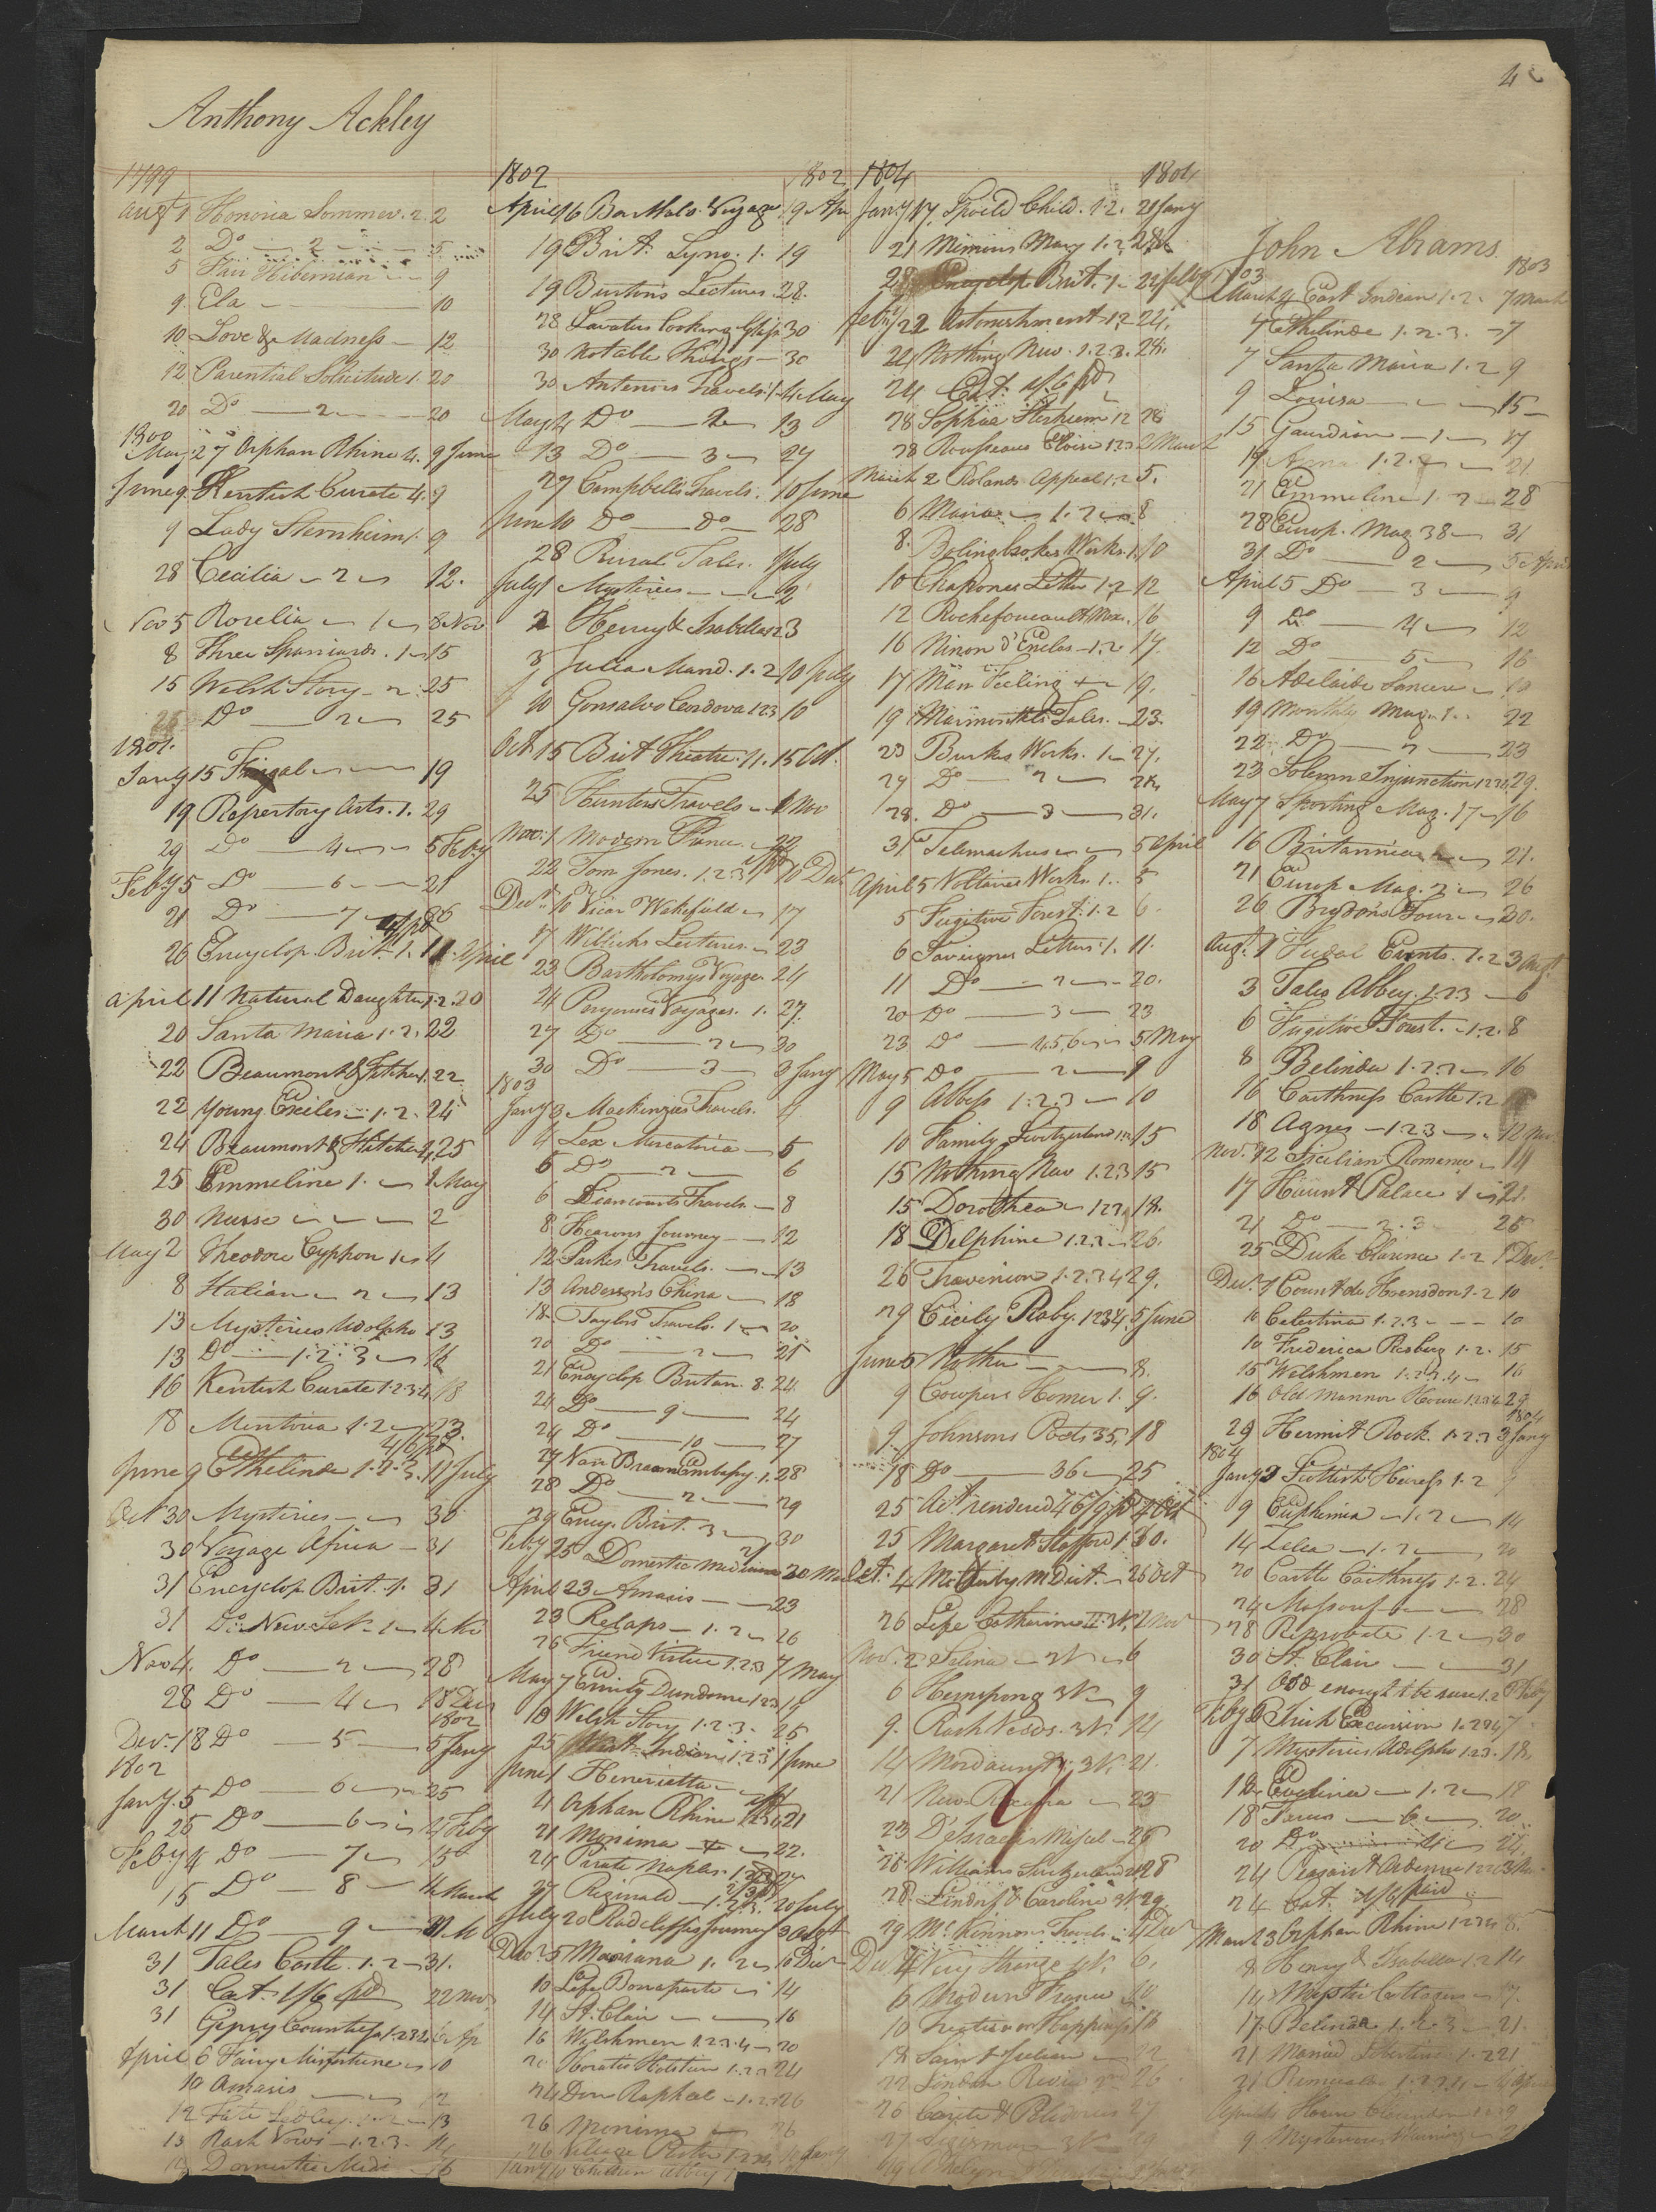 4
Anthony Ackley
1799
Augt 1 Honoria Sommer. 2. 2
2 Do — 2 — 5
5 Fair Hibernian — 9
9. Ela — 10
10 Love & Madness — 12
12 Parential Solicitude 1. 20
20 Do — 2 — 20
1800
May 27 Orphan Rhine 4. 9 June
June 9. Kentish Curate 4. 9
9 Lady Sternheim 1. 9
28 Cecilia — 2 — 12.
Nov 5 Roselia — 1 — 8 Nov
8 Three Spaniards. 1 — 15
15 Welsh Story — 2. 25
25 Do — 2 — 25
1801.
Jany 15 Fingal — 19
19 Repertory Arts. 1. 29
29 Do — 4 — 5 Feby
Feby 5 Do — 6 — 21
21 Do — 7 — 26
26 Encyclop. Brit. 1. 11. April
April 11 Natural Daughter 1.2. 20
20 Santa Maria 1.2. 22
22 Beaumont & Fletcher 1. 22
22 Young Exiles — 1.2. 24
24 Beaumont & Fletcher 4. 25
25 Emmeline 1. — 1 May
30 Nurse — 2
May 2 Theodore Cyphon 1 — 4
8 Italian — 2 — 13
13 Mysteries Udolpho 13
13 Do — 1.2.3 — 16
16 Kentish Curate 1.2.3.4. 18
18 Mentoria 1.2 — 23.
4/6 pd
June 9 Ethelinde 1.2.3. 11 July
Oct 30 Mysteries — 30
30 Voyage Africa — 31
31 Encyclop. Brit. 1. 31
31 Do New Set — 1 — 4 Nov
Nov 4. Do — 2 — 28
28 Do — 4 — 18 Decr
1802
Decr 18 Do — 5 — 5 Jany
1802
Jany. 5 Do — 6 — 25
25 Do — 6 — 4 Feby
Feby 4 Do — 7 — 15
15 Do — 8 — 11 March
March 11 Do — 9 — 31 M
31 Tales Castle. 1.2 — 31.
31 Cat. 1/6 pd 22 Nov
31 Gipsy Countess 1.2.3.4. 6 Ap
April 6 Fairy Misfortune — 10
10 Amasis — 12
12 Fate Sedley. 1.2 — 13
13 Rash Vows — 1.2.3. 14
14 Domestic Medi — 16
1802 1802
April 16 Voyage 19 Apr
19 Brit. Syno. 1. 19
19 Burton's Lectures. 28.
28 Lavater Looking Glass 30
30 Notable Things — 30
30 Antenors Travels. 1. 4 May
May 4 Do — 2 — 13
13 Do — 3 — 27
27 Campbells Travels. 10 June
June 10 Do — Do — 28
28 Rural Tales. 1 July
July 1 Mysteries — 2
2 Henry & Isabella 1.2 3
3 Julia Mand. 1.2 10 July
10 Gonsalvo Cordova 1.2.3 10
Oct 15 Brit Theatre. 11. 15 Oct.
25 Hunters Travels — 1 Nov
Nov. 1 Modern France. — 22
22 Tom Jones. 1.2.3. 10 Decr
Decr. 10 Vicar Wakefield — 17
17 Willichs Lectures. — 23
23 Bartholomys Voyage 24
24 Perouses Voyages. 1. 27.
27 Do — 2 — 30
30 Do — 3 — 3 Jany
1803
Jany 3 Mackenzies Travels. 4
4 Lex Mercatoria — 5
5 Do — 2 — 6
6 Liancourts Travels. — 8
8. Hearons Journey — 12
12. Parkes Travels. — 13
13 Anderson's China — 18
18. Taylors Travels. 1 — 20
20 Do — 2 — 21
21 Encyclop Britan. 8. 24
24 Do — 9 — 24
24 Do — 10 — 27
27 Van Braam Embassy. 1. 28
28 Do — 2 — 29
29 Ency. Brit. 3 — 30
Feby 25 Domestic Medicine 20 Mar
April 23 Amasis — 23
23 Relaps — 1.2 — 26
26 Friend Virtue 1.2.3 7 May
May 7 Emily Dundorne 1.2.3 19
18 Welsh Story 1.2.3. 25
25 West Indian 1.2.3 1 June
June 1 Henrietta — 4
4 Orphan Rhine 1.2.3.4 21
21 Monima — 22.
24 Pirate Naples. 1.2.3 27
27 Reginald — 1.2.3. 20 July
July 20 Radcliffes Journey 3 Augt
Decr. 5 Mariana 1.2 — 10 Decr
10 Life Bonaparte — 14
14 St. Clair — 16
16 Welshmen 1.2.3.4 — 20
20 Horatio Holstein 1.2.3 24
24 Don Raphael — 1.2.3 26
26 Monima — 26
26 Village Pastor 1.2.3.4 10 Jany
Jany 10 Children Abbey
1804 1804
Jany 17. Spoild Child. 1.2. 21 Jany
21 Memoirs Mary 1.2 28.
28 Encyclop Brit. 1 — 22 Feby
Feby 22 Astonishment 1.2 24.
24 Nothing New. 1.2.3. 28.
24 Cat. 1/6 pd
28 Sophia Sternheim 1.2 28
28 Rousseaus Eloisa 1.2.3 2 March
March 2 Rolands Appeal 1.2 5.
6 Maria — 1.2 — 8
8. Bolingbrokes Works. 1. 10
10 Chapones Letters 1.2 12
12 Rochefoucault Max. 16
16 Ninon d'Enclos — 1.2 17
17 Man Feeling — 19.
19 Marmontels Tales. — 23.
23 Burkes Works. 1 — 27.
27 Do — 2 — 28.
28. Do — 3 — 31.
31 Telemachus — 5 April
April 5 Voltaires Works. 1. 5
5 Fugitive Forest. 1.2 6.
6 Savignes Letters. 1. 11.
11 Do — 2 — 20.
20 Do — 3 — 23
23 Do — 4.5.6 — 5 May
May 5 Do — 2 — 9
9 Abbess 1.2.3 — 10
10 Family Switzerland 1.2 15
15 Nothing New 1.2.3 15
15 Dorothea — 1.2.3. 18.
18 Delphine 1.2.3 — 26.
26 Travenion 1.2.3.4 29.
29 Cicily Raby. 1.2.3.4. 5 June
June 5 Rotha — 8.
9 Cowpers Homer 1. 9.
9. Johnsons Poets 35. 18
18 Do — 36 — 25
25 Act rendered 46/9 pd 4 Oct
25 Margaret Stafford 1 30.
Oct. 4 McCurby M Dict. — 26 Oct
26 Life Catharine II. 3 V. 2 Nov
Nov. 2 Selina — 2 V — 6
6 Hermsprong 3 V. 9
9. Rash Vows. 3 V. 14
14 Mordaunt. 3 V. 21.
21 New — 23
23 D'Israelis Miscel — 26
26. Williams Switzerland 2 V 28
28. Lindorf & Caroline 3 V. 29
29 McKinnons Travels — 4 Decr
Decr 4 Very Strange 4 V. 6.
6 Modern France 10
10 on Happiness 18
18 Saint Julian — 22
22 London Review 26
26 Carite & Polidorus 27
27 3 V
John Abrams.
1803 1803
March 4 East Indian 1.2. 7 March
7 Ethelinde 1.2.3. — 7
7 Santa Maria 1.2 9
9 Louisa — 15 —
15 Gaurdian — 1 — 17
19 Anna 1.2. — 21
21 Emmeline 1.2 — 28
28 Europ. Mag 38 — 31
31 Do — 2 — 5 April
April 5 Do — 3 — 9
9 Do — 4 — 12
12 Do — 5 — 16
16 Adelaide Sancere — 19
19 Monthly Mag. 1. 22
22 Do — 2 — 23
23 Solemn Injunction 1.2.3.4. 29.
May 7 Sporting Mag. 17 — 16
16 Britannica — 21.
21 Europ Mag. 2 — 26
26 Brydons Tour — 30.
Augt. 1 Feudal Events. 1.2 3 Augt
3 Tales Abbey. 1.2.3 — 6
6 Fugitive Forest. — 1.2. 8
8 Belinda 1.2.3 — 16
16 Caithness Castle 1.2
18 Agnes — 1.2.3 — 12 Nov.
Nov. 12 Sicilian Romance — 14
17 Haunt Palace 1 — 21.
21 Do — 2.3 25
25 Duke Clarence 1.2 1 Decr
Decr. 1 Count de Hoensdern 1.2 10
10 Celestina 1.2.3 — 10
10 Frederica Risberg 1.2. 15
15 Welshmen 1.2.3.4 — 16
16 Old Mannor House 1.2.3.4 29
1804
29 Hermit Rock. 1.2.3 3 Jany
1804
Jany 3 Scottish Heiress 1.2 9
9 Euphemia — 1.2 — 14
14 Lelia — 1.2 — 20
20 Castle Caithness 1.2. 24
24 Massouf — 28
28 Reprobate 1.2 — 30
30 St. Clair — 31
31 Odd enough to be sure 1.2 6 Feby
Feby 6 Irish Excursion 1.2.3.4 7
7 Mysteries Udolpho 1.2.3. 18.
18. Evelina — 1.2 — 18
18 — 6 — 20
20 Do — 4 — 24.
24 Ardenne 1.2.3 3 Mar
24 Cat. 1/6 paid
March 3 Orphan Rhine 1.2.3.4 8.
8 Henry & Isabella 1.2 14
14 Mystic Cottager — 17.
17. Belinda 1.2.3 — 21.
21 1.2 21
21 Romualdo 1.2.3.4
9 Mysterious Warning